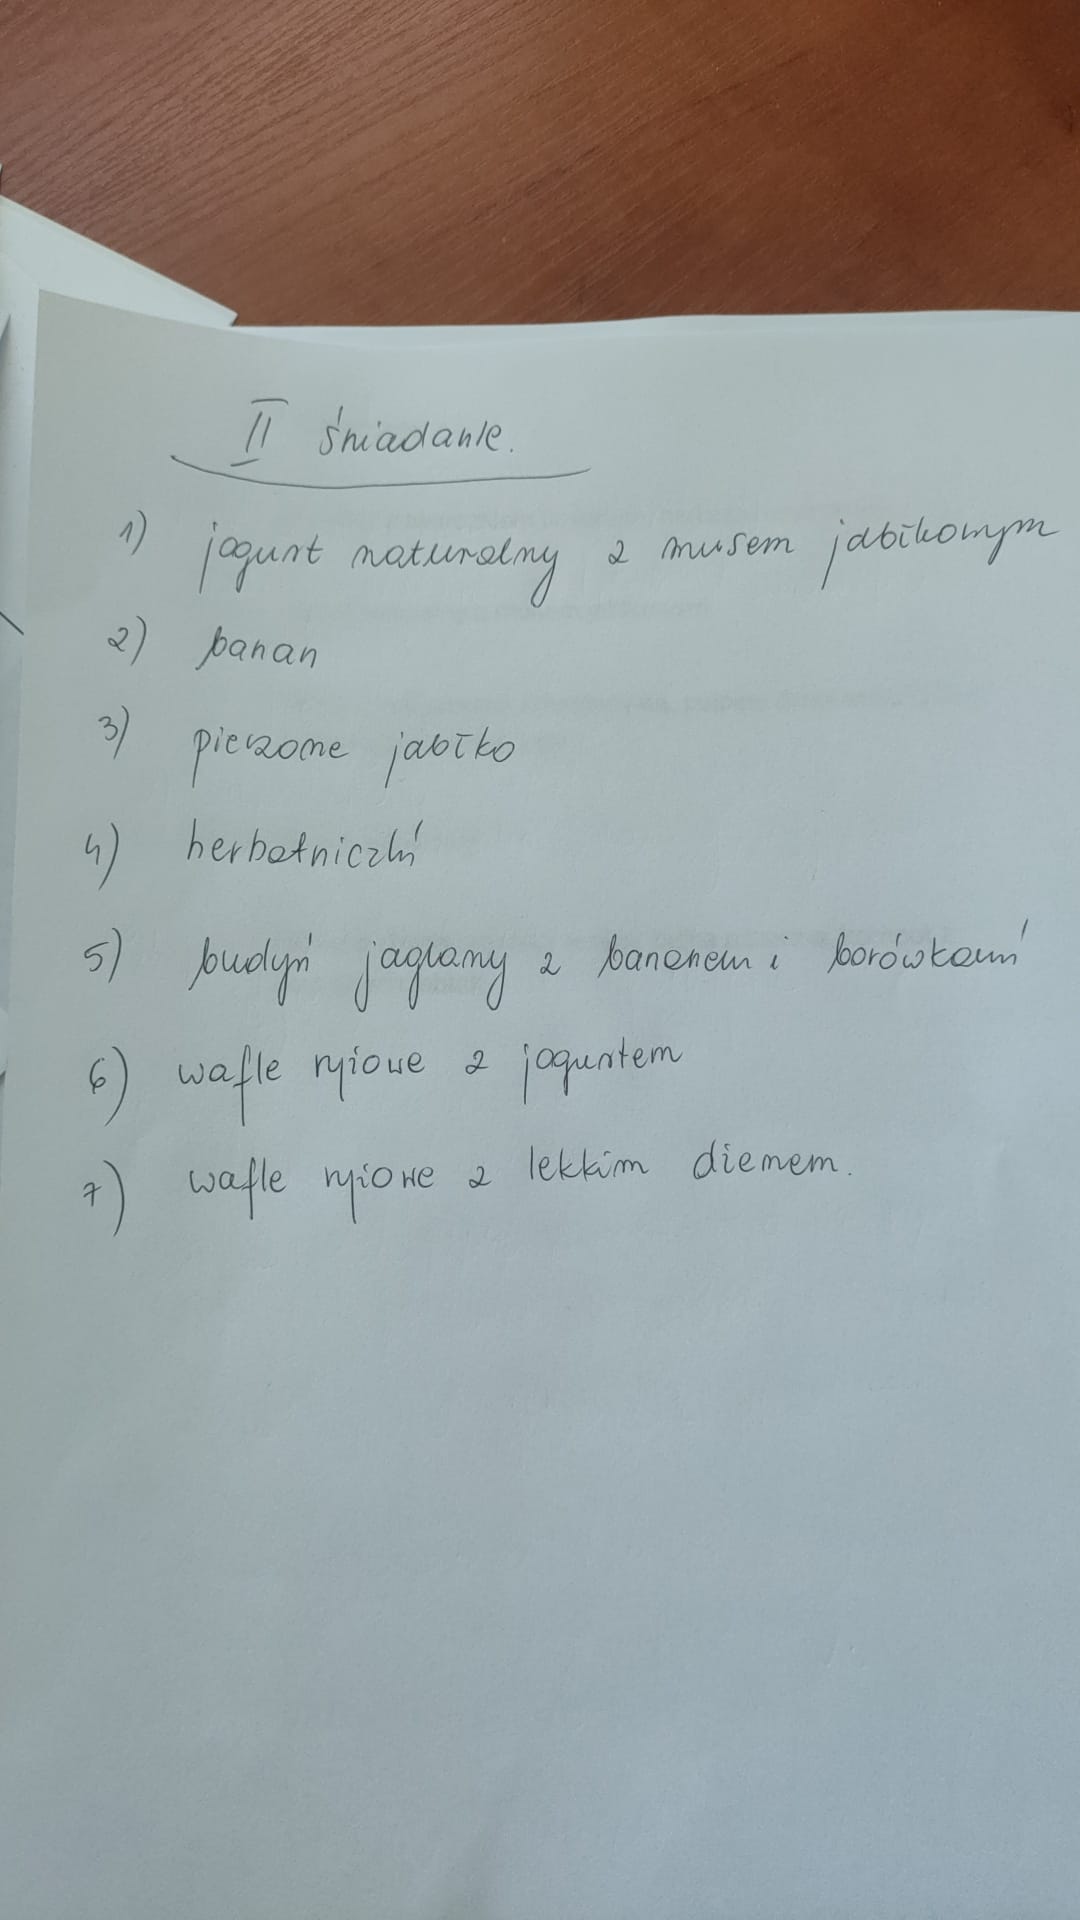 II śniadanie.
1) jogurt naturalny z musem jabłkowym
2) banan
3) pieczone jabłko
4) herbatniczki
5) budyń jaglany z bananem i borówkami
6) wafle ryżowe z jogurtem
7) wafle ryżowe z lekkim dżemem.